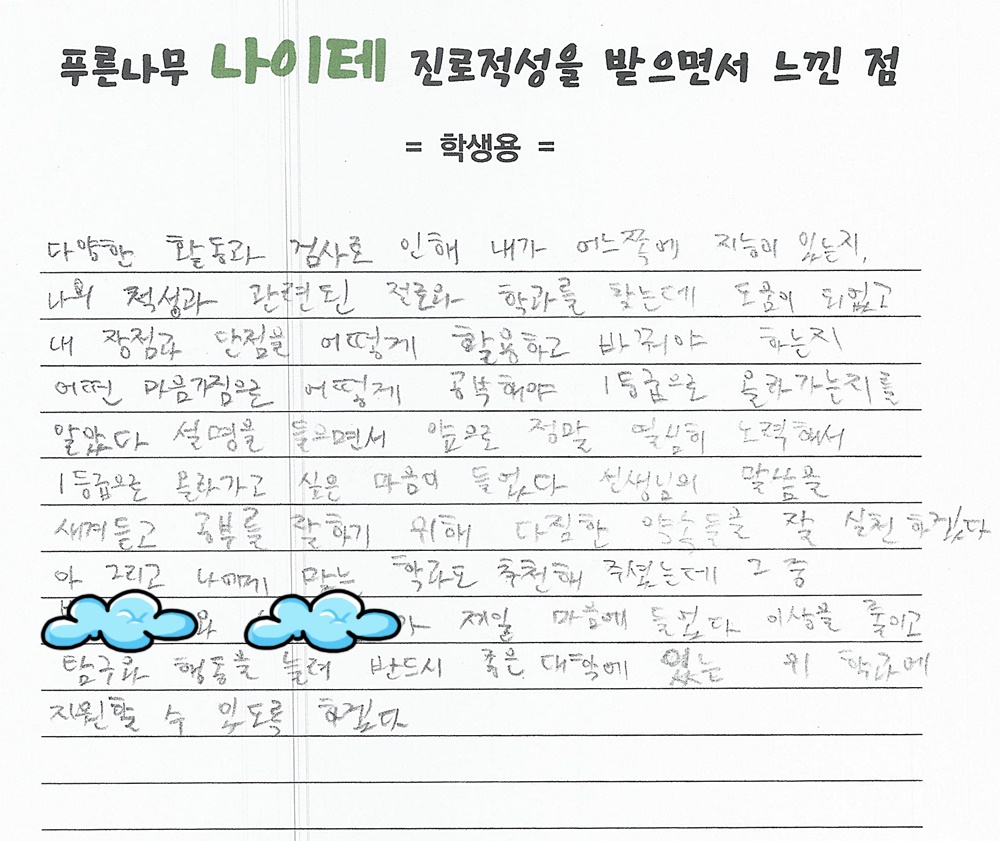 푸른나무 나이테 진로적성을 받으면서 느낀 점
= 학생용 =
다양한 활동과 검사로 인해 내가 어느쪽에 지능이 있는지,
나의 적성과 관련된 전로와 학과를 찾는데 도움이 되었고
내 장점과 단점을 어떻게 활용하고 바꿔야 하는지
어떤 마음가짐으로 어떻게 공부해야 1등급으로 올라가는지를
알았다 설명을 들으면서 앞으로 정말 열심히 노력해서
1등급으로 올라가고 싶은 마음이 들었다 선생님의 말씀을
새겨듣고 공부를 잘하기 위해 다짐한 약속들을 잘 실천하겠다
아 그리고 나에게 맞는 학과도 추천해 주셨는데 그 중
와 가 제일 마음에 들었다 이상을 줄이고
탐구와 행동을 늘려 반드시 좋은 대학에 있는 위 학과에
지원할 수 있도록 하겠다